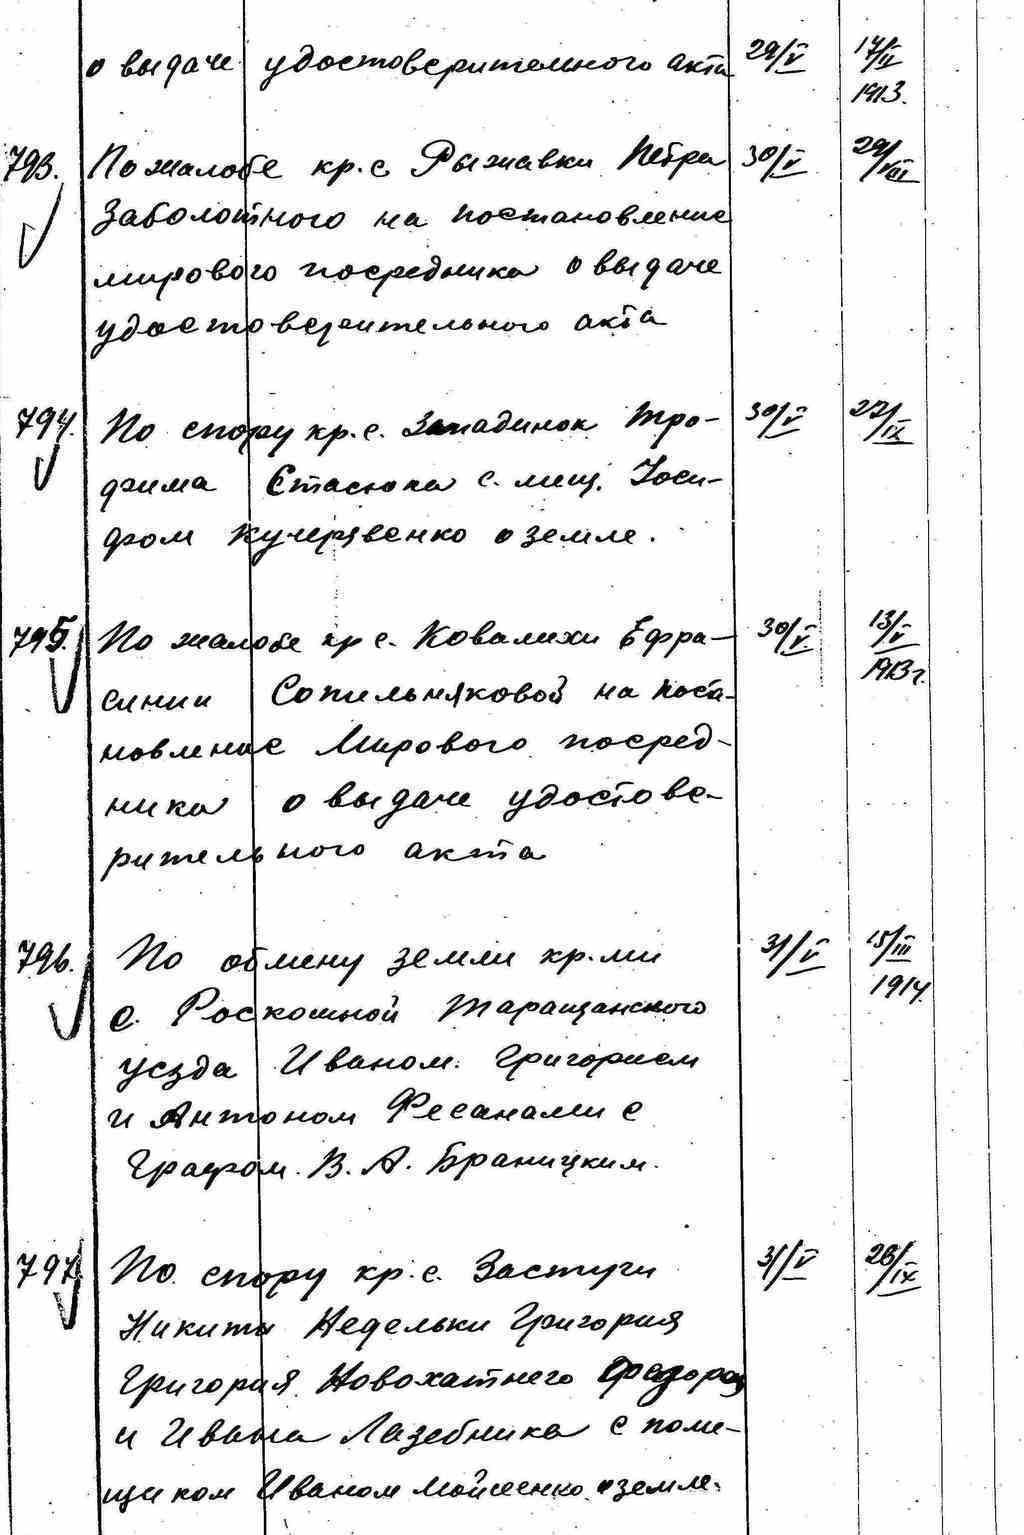 о выдаче удостоверительного акта 29/V 17/II
1913.
793. По жалобе кр. с. Рыжавки Петра 30/V 29/VIII
Заболотного на постановление
мирового посредника о выдаче
удостоверительного акта
794. По спору кр. с. Западинок Тро- 30/V 27/IX
фима Стасюка с мещ. Иоси-
фом Кучерявенко о земле.
795. По жалобе кр с. Ковалихи Ефра- 30/V. 13/V
1913 г.
синии Сопильняковой на поста-
новление Мирового посред-
ника о выдаче удостове-
рительного акта
796. По обмену земли кр.ми 31/V 15/III
1914.
с. Роскошной Таращанского
уезда Иваном. Григорием
и Антоном Фесанами с
Графом. В. А. Браницким.
797. По спору кр. с. Застуги 31/V 26/IX
Никиты Недельки Григория
Григория Новохатнего Федора
и Ивана Лазебника с поме-
щиком Иваном Мойсеенко о земле.